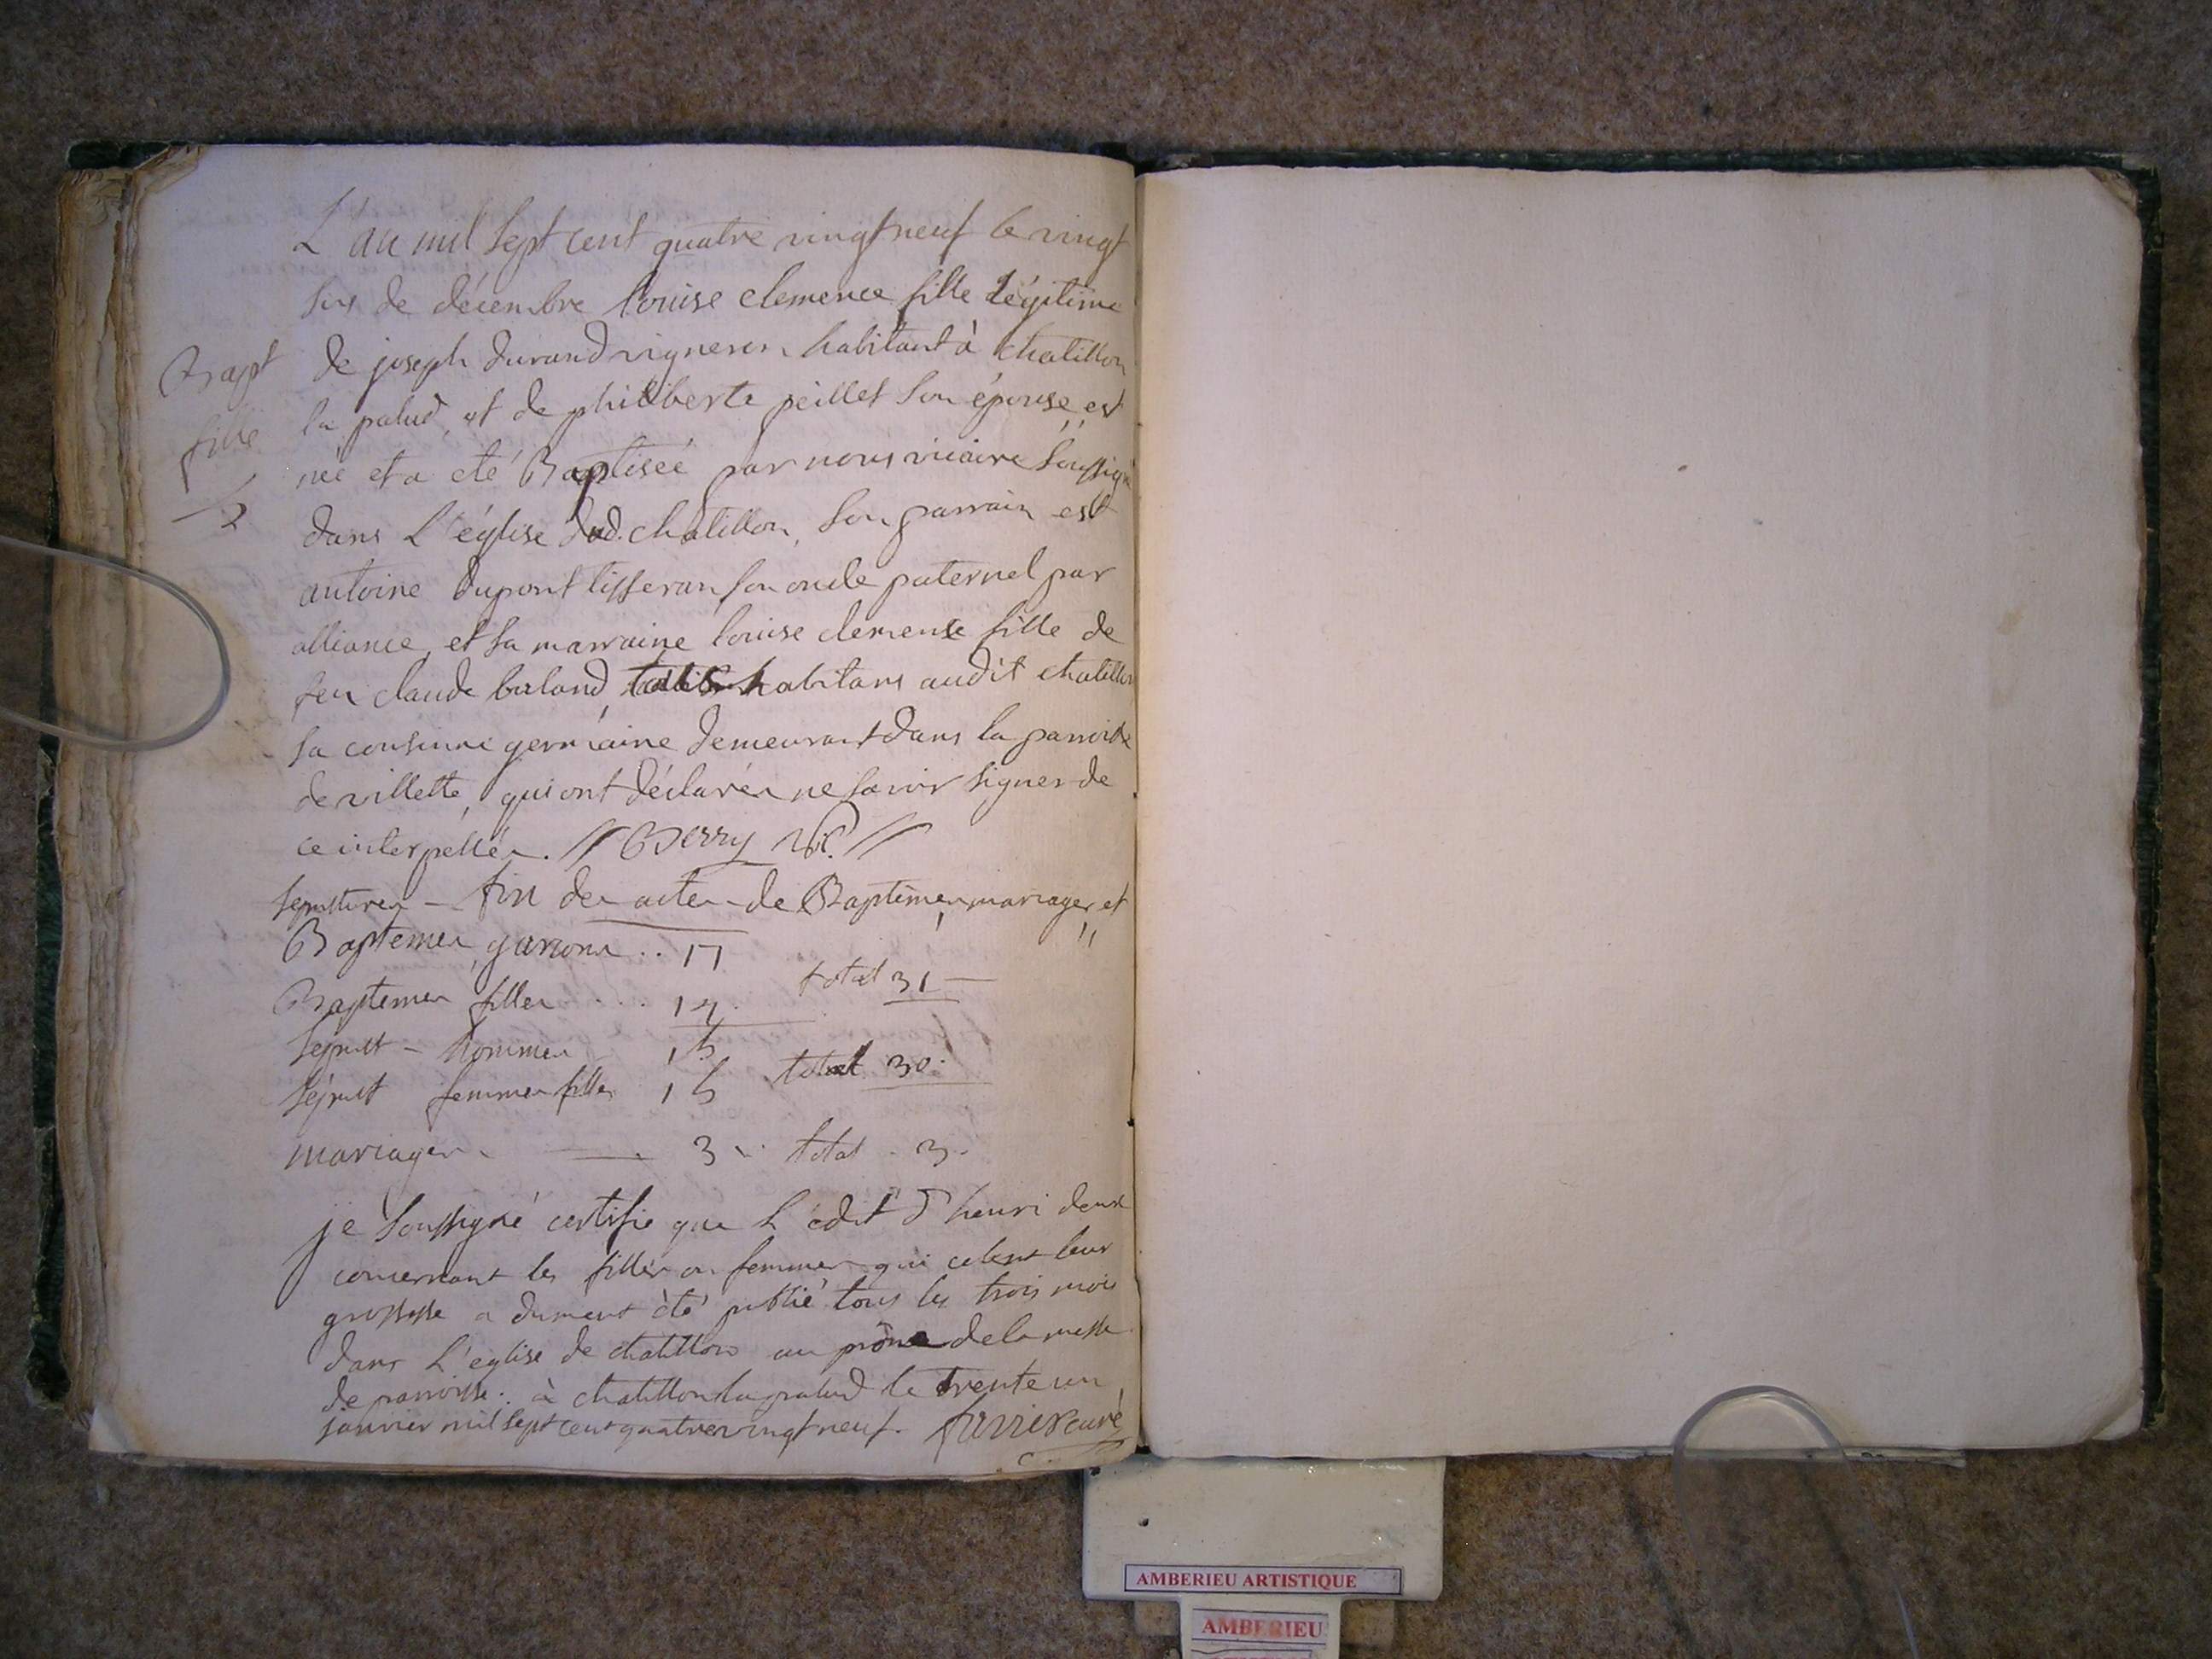 L'an mil Sept cent quatre vingt neuf le vingt
six de décembre louise clemence fille Légitime
de joseph durand vigneron habitant à chatillon
la palud, et de philiberte peillet son épouse, est
née et a été Baptisée par nous vicaire Soussigné
dans L'église dud. chatillon, son parrain est
antoine dupont tisseran son oncle paternel par
alliance, et sa marraine louise clemence fille de
feu claude habitans audit chatillon
sa cousine germaine demeurant dans la parroisse
de villette, qui ont déclarés ne savoir signer de
ce interpellés. // Berry vic. //
Bapt
fille
sepultures - fin des actes de Baptêmes, mariages, et
Baptemes garçons .. 17
total 31
Baptemes filles ... 14
Sepult - hommes 15
total 30
Sépult femmes filles 15
mariages 3 total 3
je Soussigné certifie que L'édit d'henri deux
concernant les filles ou femmes qui celent leur
grossesse a dument été publié tous les trois mois
dans L'eglise de chatillon au prône de la messe
de parroisse. à chatillon la palud le trente un
janvier mil sept cent quatre vingt neuf. curé
AMBERIEU ARTISTIQUE
AMBERIEU